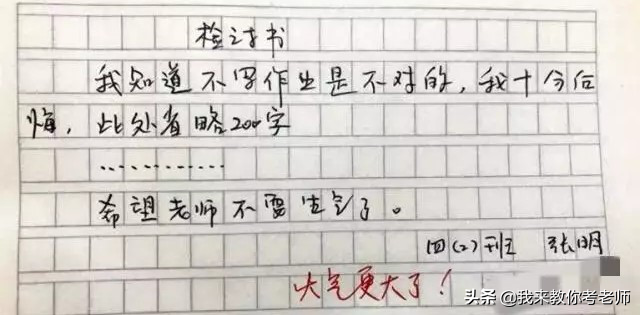 检讨书
我知道不写作业是不对的，我十分后
悔，此处省略200字
............
希望老师不要生气了。
四(2)班 张明
火气更大了！
头条 @我来教你考老师